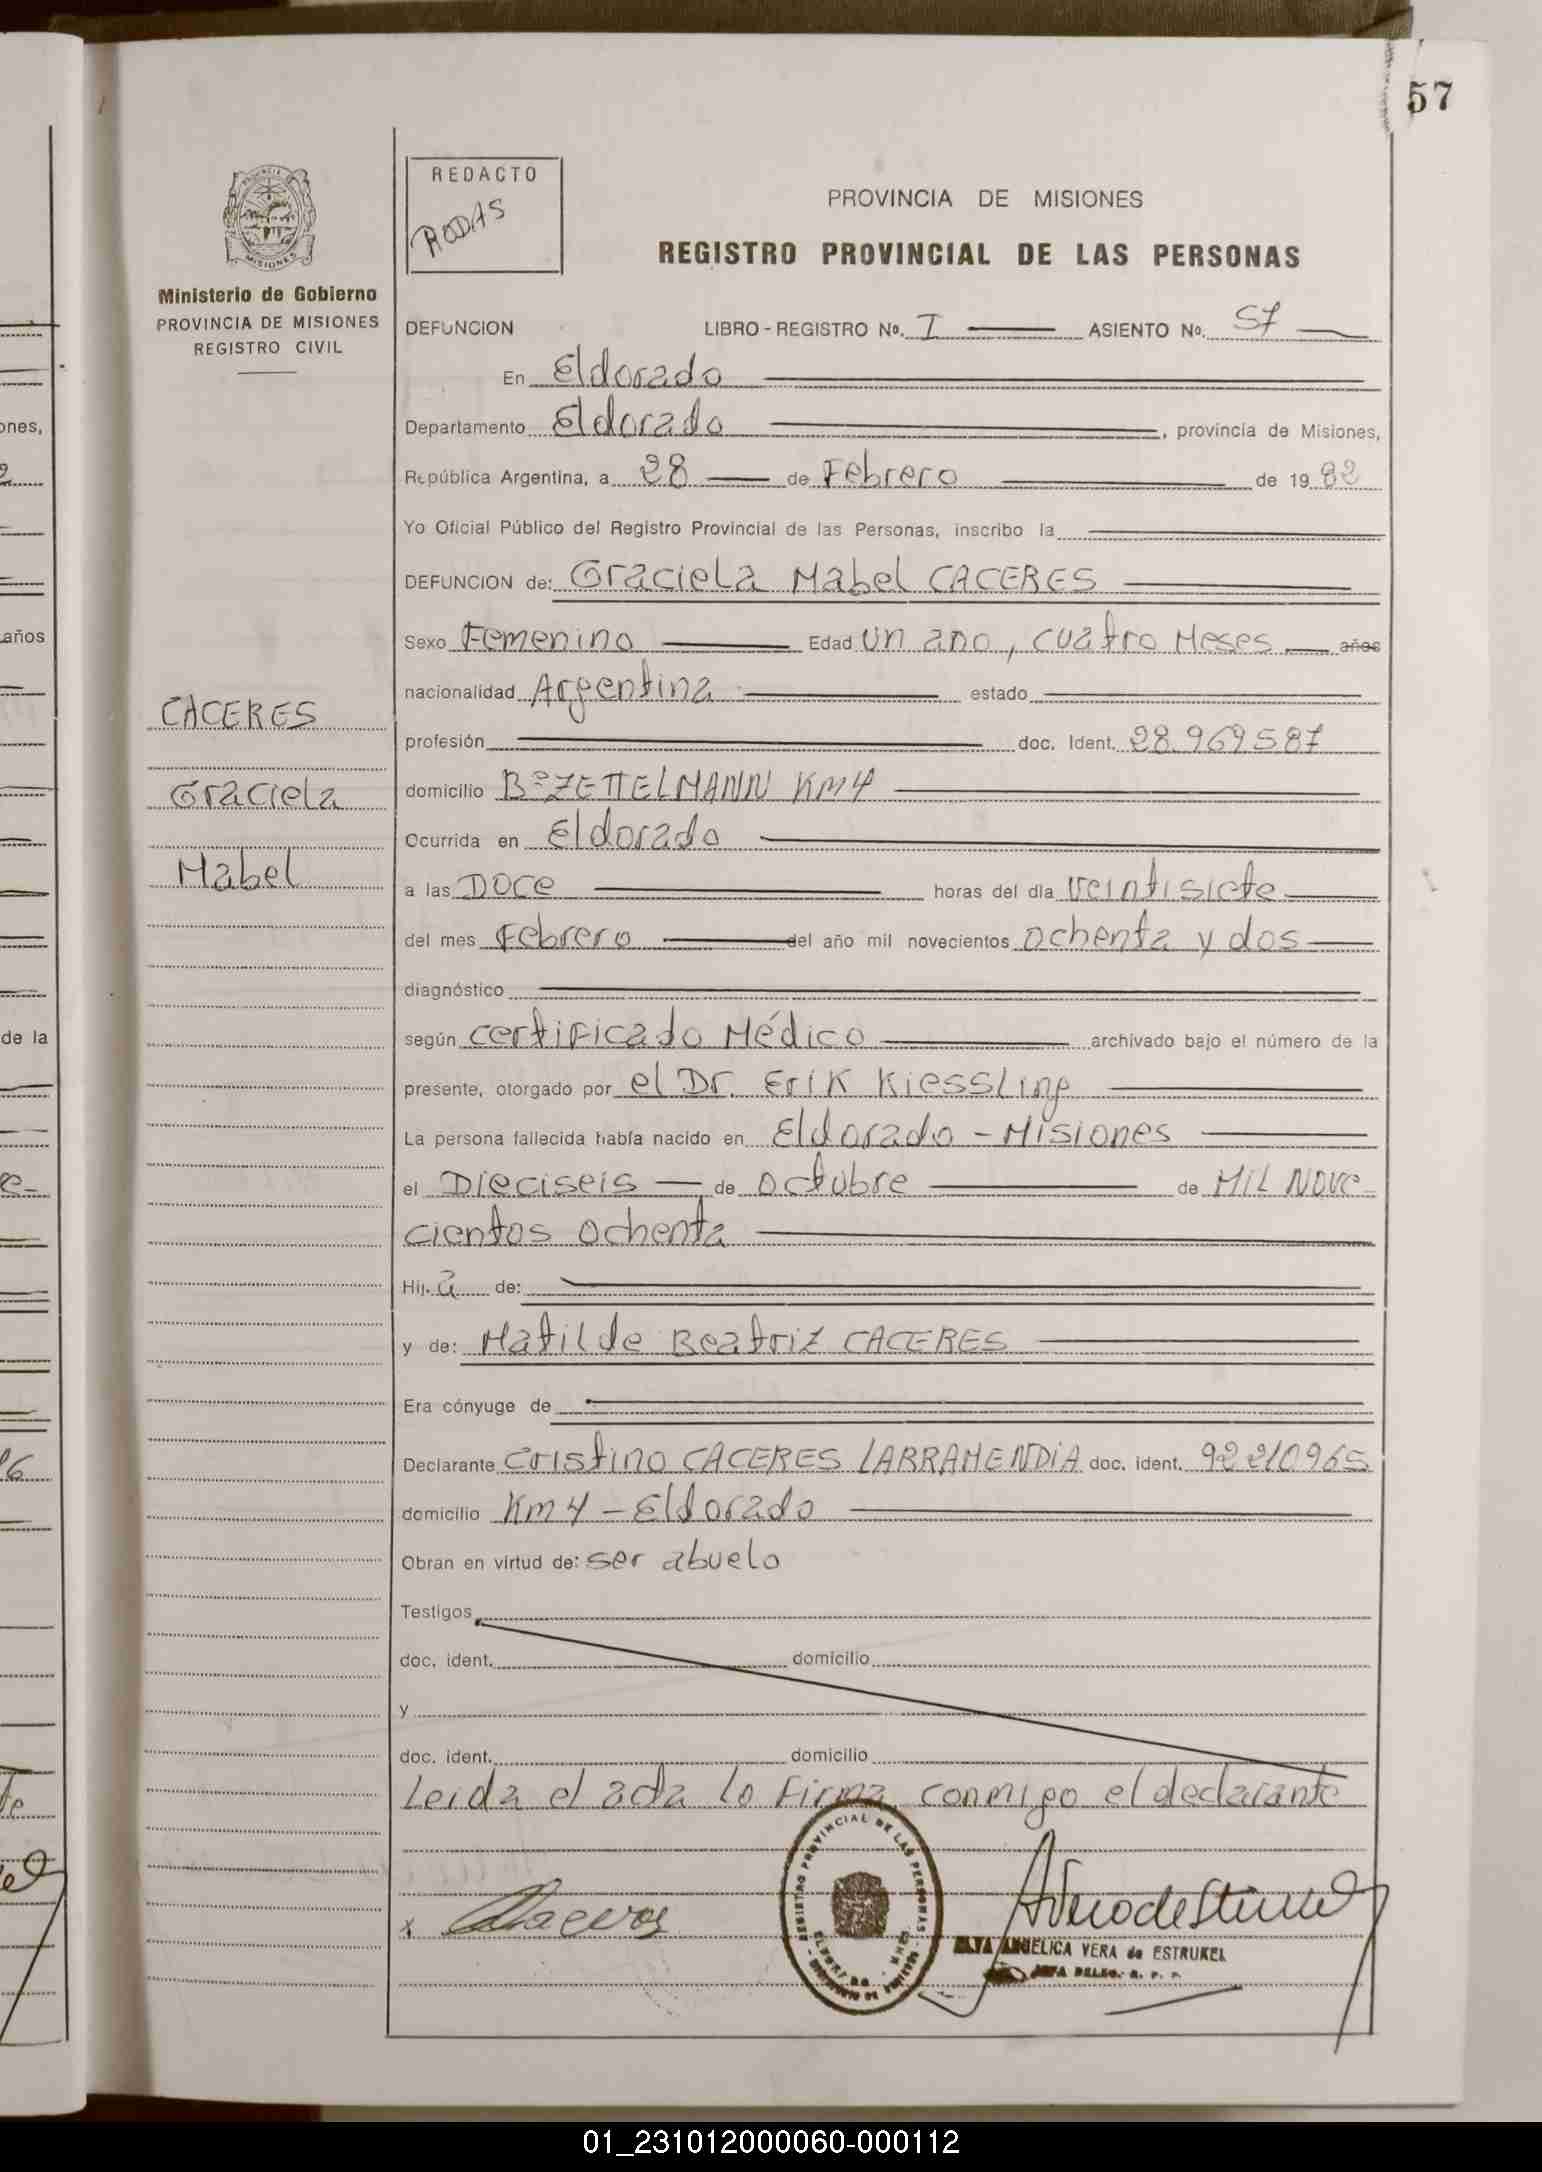 57
PROVINCIA DE MISIONES
REDACTO
RODAS
PROVINCIA DE MISIONES
REGISTRO PROVINCIAL DE LAS PERSONAS
Ministerio de Gobierno
PROVINCIA DE MISIONES
REGISTRO CIVIL
DEFUNCION LIBRO - REGISTRO No. I ASIENTO No. 57
En Eldorado
Departamento Eldorado, provincia de Misiones,
República Argentina, a 28 de Febrero de 1982
Yo Oficial Público del Registro Provincial de las Personas, inscribo la
DEFUNCION de: Graciela Mabel CACERES
Sexo Femenino Edad un ano, cuatro Meses años
nacionalidad Argentina estado
CACERES
profesión doc. Ident. 28.969587
Graciela
domicilio Bº ZETTELMANN KM 4
Ocurrida en Eldorado
Mabel
a las DOCE horas del día veintisiete
del mes Febrero del año mil novecientos ochenta y dos
diagnóstico
según certificado Médico archivado bajo el número de la
presente, otorgado por el Dr. Erik Kiessling
La persona fallecida había nacido en Eldorado - Misiones
el Dieciseis de octubre de MIL NOVE-
cientos ochenta
Hij a de:
y de: Matilde Beatriz CACERES
Era cónyuge de
Declarante Cristino CACERES LARRAMENDIA doc. ident. 92210965
domicilio Km 4 - Eldorado
Obran en virtud de: ser abuelo
Testigos
doc. ident. domicilio
y
doc. ident. domicilio
Leida el acta lo firma conmigo el declarante
REGISTRO PROVINCIAL DE LAS PERSONAS
x Caceres
ANGELICA VERA de ESTRUKEL
JEFA DELEG. R. P. P.
ones,
años
de la
01_231012000060-000112